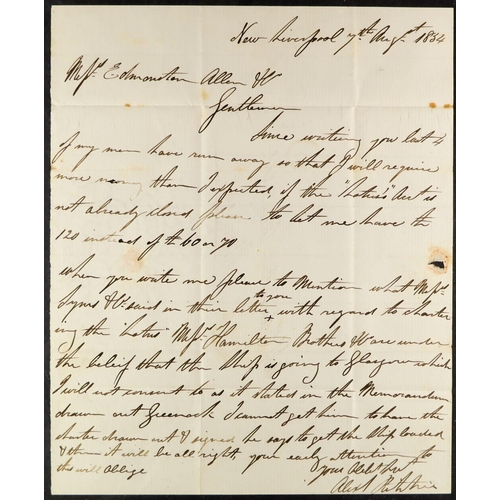 New Liverpool 7th Augst 1834
Messrs Edmonston Allan & Co
Gentlemen
Since writing you last 4
of my men have run away so that I will require
more money than I expected, if the "Lotus's" Acct is
not already closed please to let me have the
120 instead of the 60 or 70
when you write me please to Mention what Messrs
Symes & Co said in their letter to you with regard to charter
ing the Lotus Messrs Hamilton Brothers & Co are under
the belief that the Ship is going to Glasgow which
I will not consent to as it stated in the Memorandum
drawn out Greenock I cannot get him to have the
charter drawn out & signed he says to get the Ship loaded
& then it will be all right, your early attention to
this will oblige your Obdt Svt
Alexr Ritchie